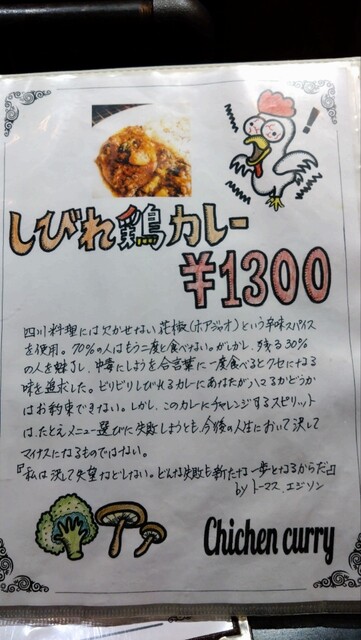 しびれ鶏カレー
¥1300
四川料理には欠かせない花椒(ホアジャオ)という辛味スパイス
を使用。70%の人はもう二度と食べない。がしかし、残る30%
の人を魅了し、中毒にしようを合言葉に一度食べるとクセになる
味を追求した。ビリビリしびれるカレーにあなたがハマるかどうか
はお約束できない。しかし、このカレーにチャレンジするスピリット
は、たとえメニュー選びに失敗しようとも、今後の人生において決して
マイナスになるものではない。
『私は決して失望などしない。どんな失敗も新たな一歩となるからだ』
by トーマス エジソン
Chichen curry